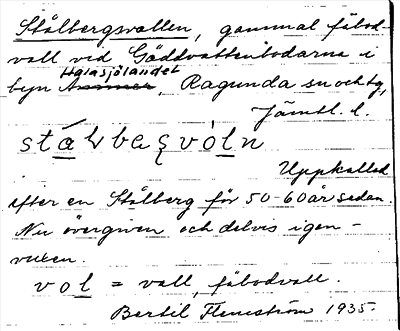 Stålbergsvallen, gammal fäbod-
vall vid Gäddvattenbodarna i
Halasjölandet
byn Ammer, Ragunda sn och tg,
Jämtl. l.
stálbesvóln
Uppkallad
efter en Stålberg för 50-60 år sedan.
Nu övergiven och delvis igen-
vuxen.
vol = vall, fäbodvall.
Bertil Flemström 1935.